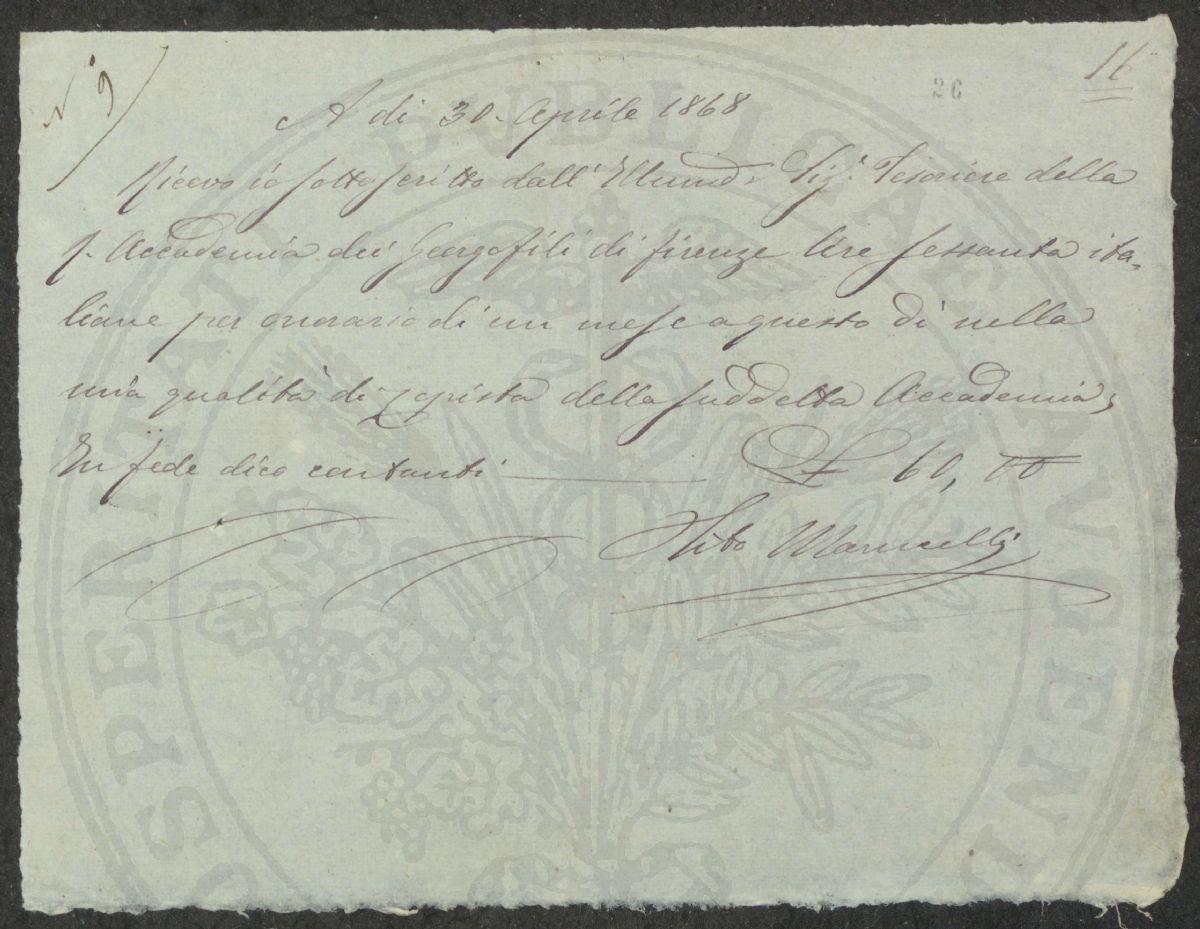 N° 9
16
26
A di 30. Aprile 1868
Ricevo io sottoscritto dall' Sig.r Tesoriere della
R. Accademia dei Georgofili di firenze lire sessanta ita-
liane per onorario di un mese a questo dì nella
mia qualità di copista della suddetta Accademia,
In fede dico contanti £ 60, 00
Tito
PROSPERITATI PVBLICAE AVGENDAE